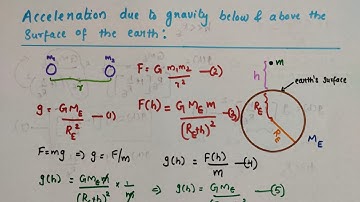 Acceleration due to gravity below & above the
Surface of the earth:
m₁ m₂
r
F = G m₁m₂/r² —(2)
m
h
earth's surface
g = G M_E/R_E² —(1)
F(h) = G M_E m/(R_E+h)² —(3)
R_E
R_E
M_E
F=mg => g = F/m
g(h) = F(h)/m —(4)
g(h) = G M_E m/(R_E+h)² × 1/m => g(h) = G M_E —(5)